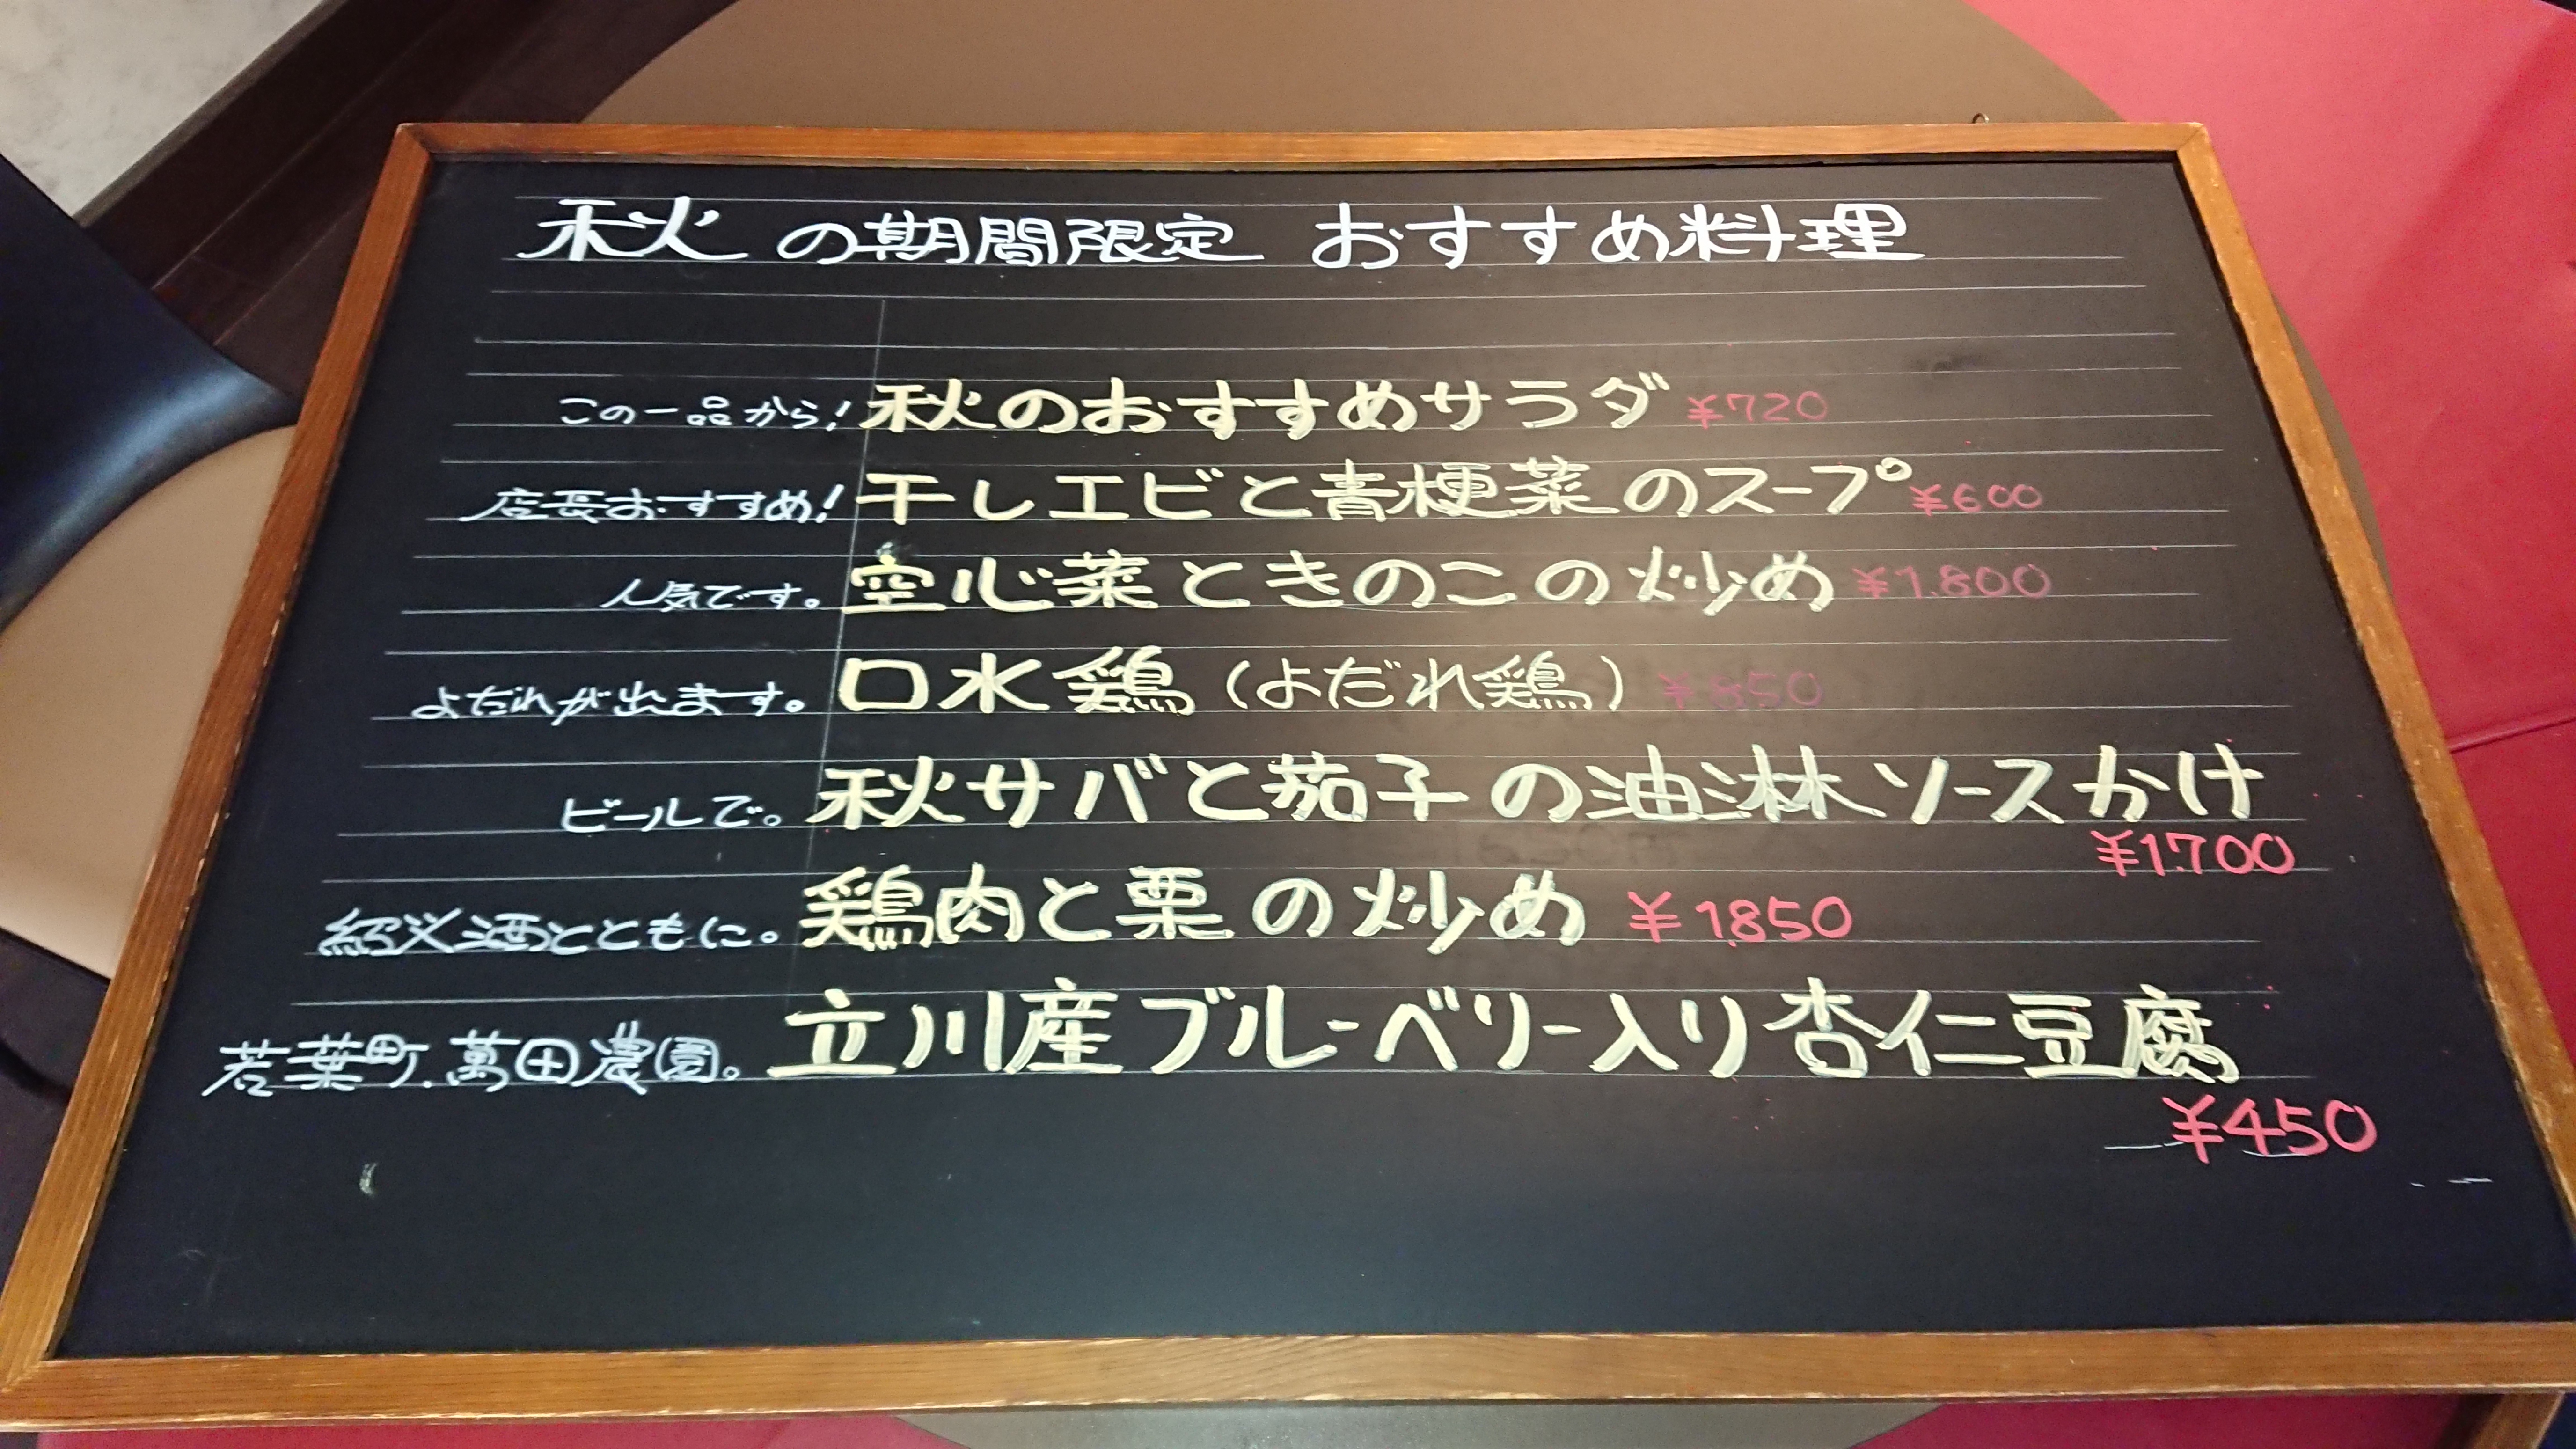 秋の期間限定 おすすめ料理
この一品から! 秋のおすすめサラダ ¥720
店長おすすめ! 干しエビと青梗菜のスープ ¥600
人気です。 空心菜ときのこの炒め ¥1.800
よだれが出ます。 口水鶏(よだれ鶏) ¥850
ビールで。 秋サバと茄子の油淋ソースかけ
¥1.700
紹興酒とともに。 鶏肉と栗の炒め ¥1.850
若葉町.萬田農園。 立川産ブルーベリー入り杏仁豆腐
¥450